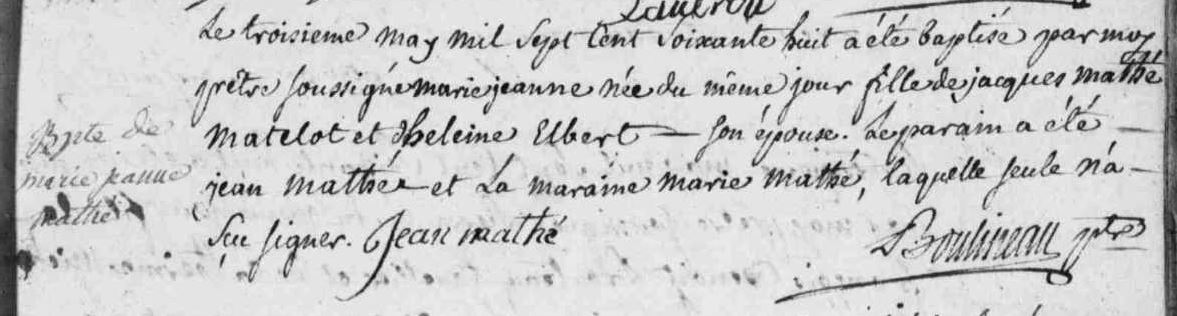 Le troisieme may mil sept cent soixante huit a été baptisé par moy
prêtre soussigné marie jeanne née du même jour fille de jacques mathé
matelot et d'heleine Elbert — son épouse. Le parain a été —
jean mathé et La maraine marie mathé, laquelle seule n'a —
sçu signer. Jean mathé
Boulineau ptre
Bpte de
marie jeanne
mathé